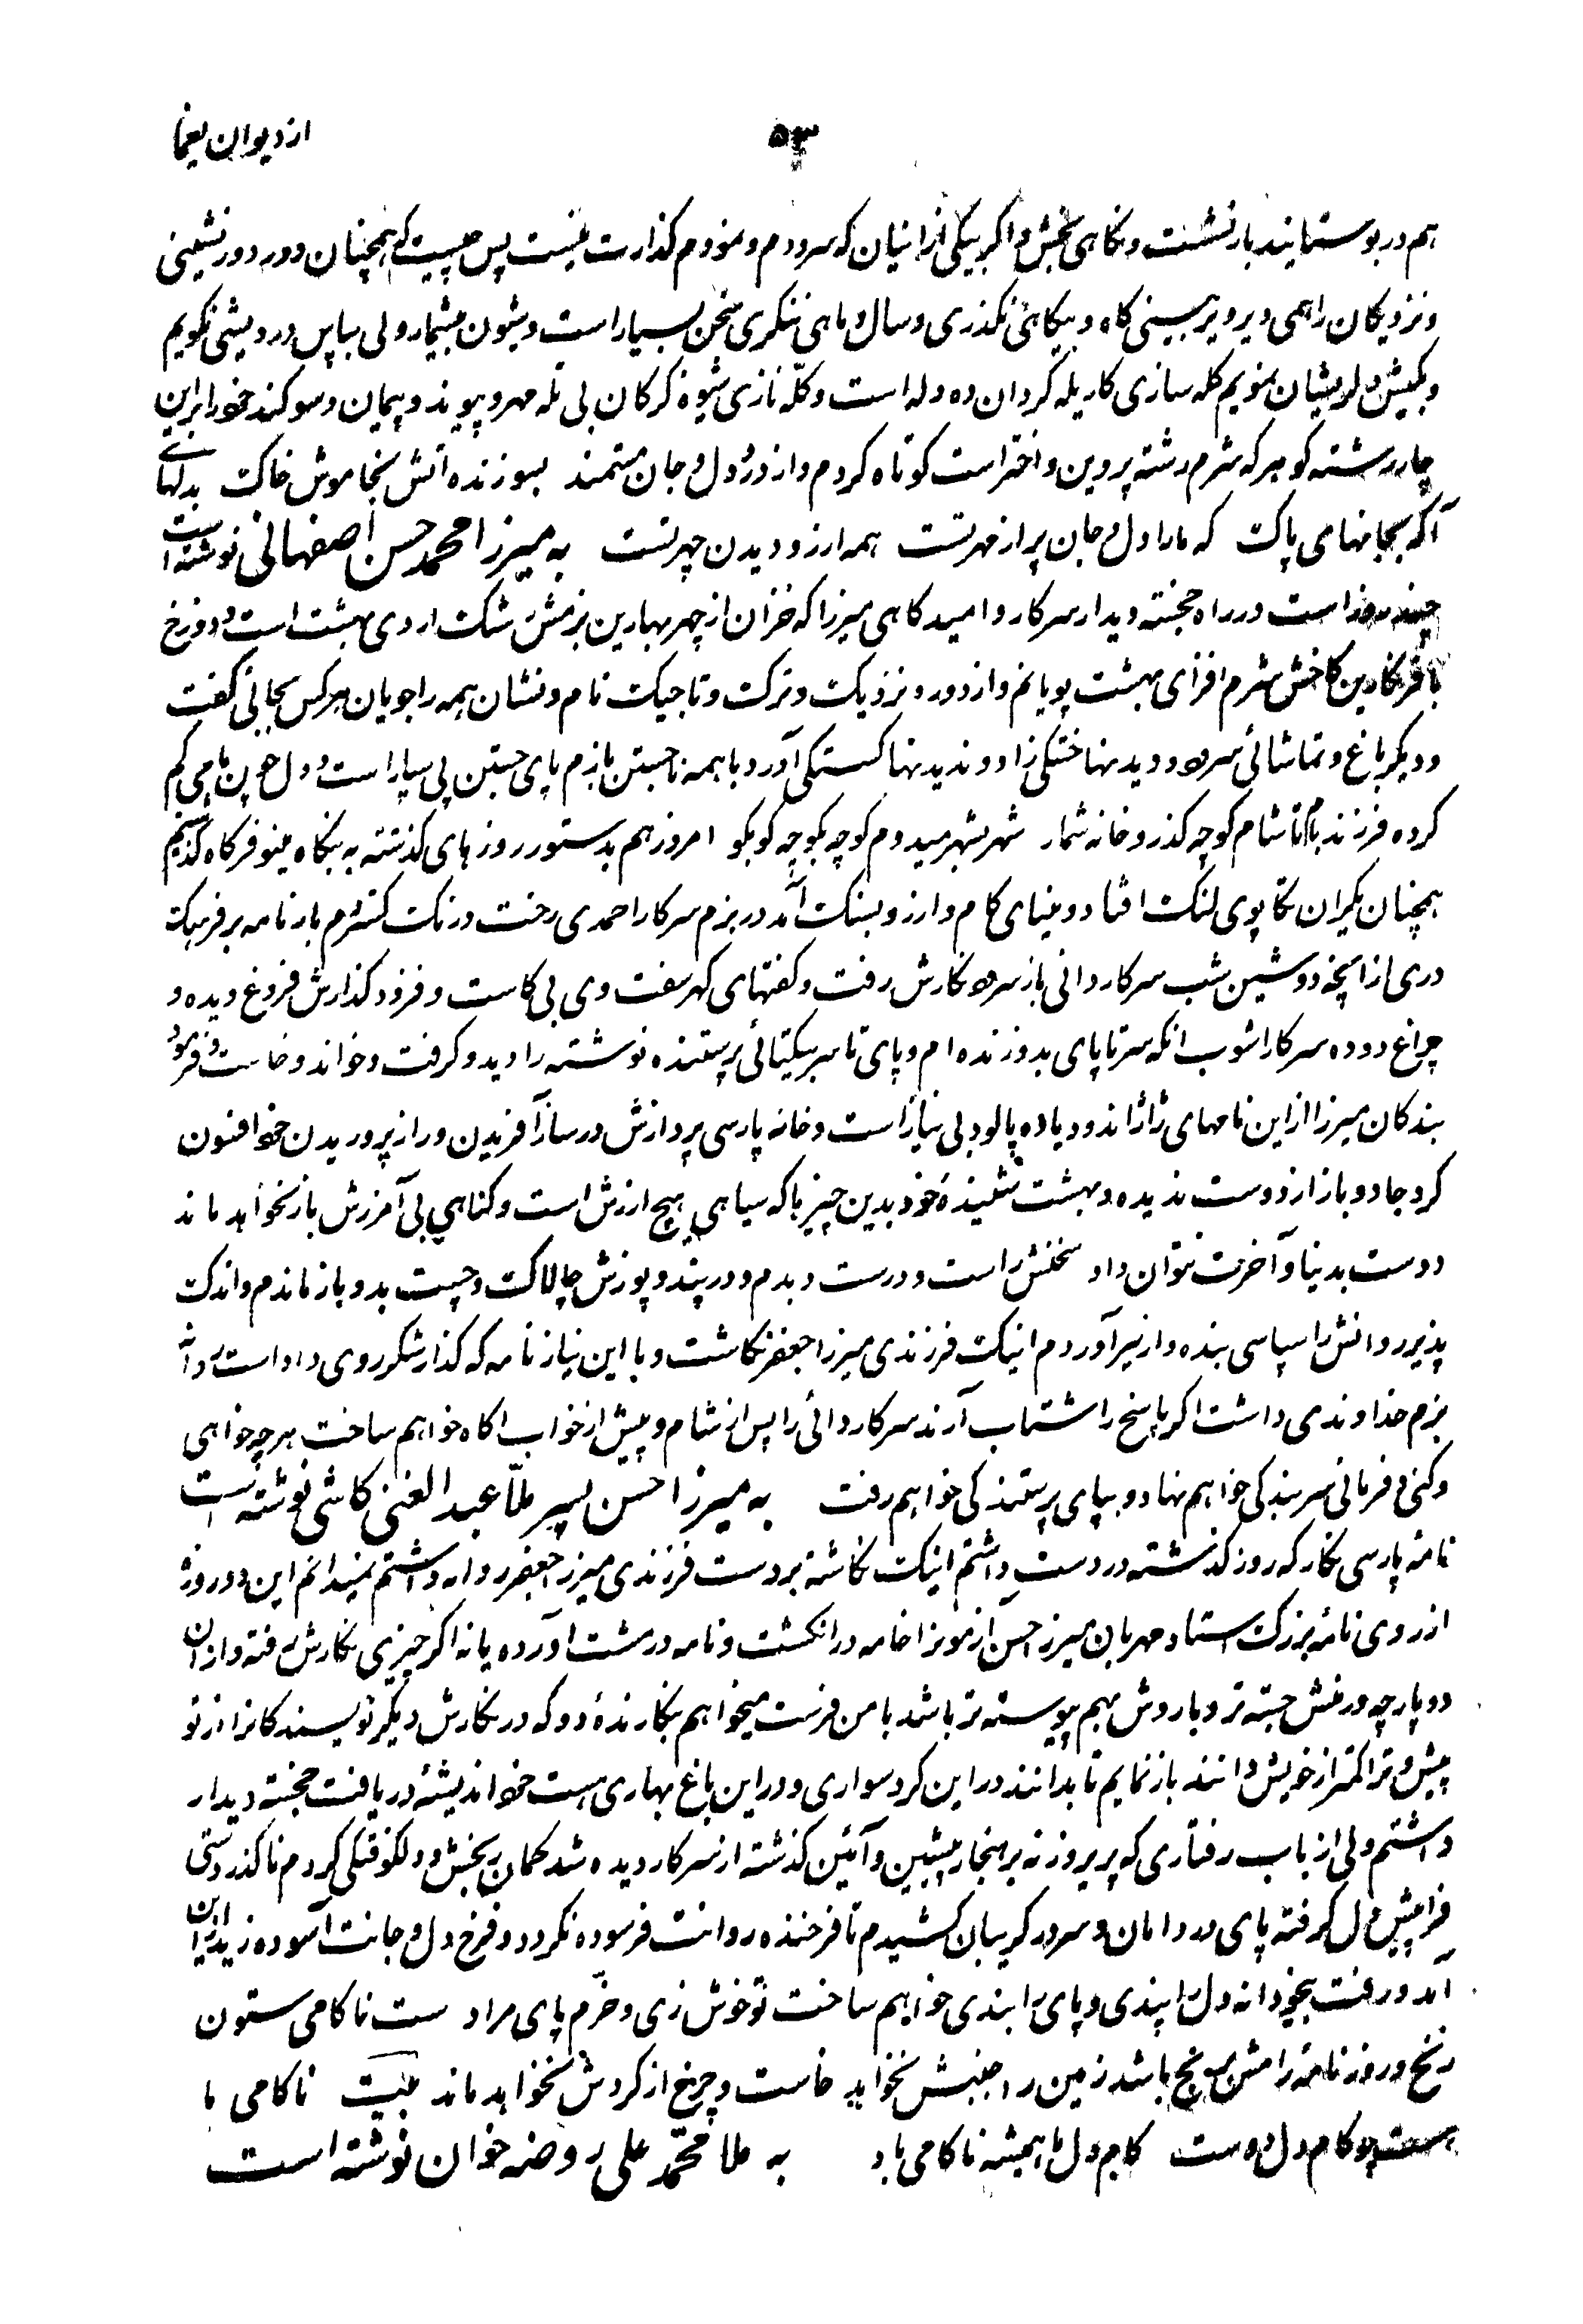 ۵۳ از دیوان یغما
هم در بوستانیند باز نشست و نگاهی بخش و اگر بیکی از اینان که سرودم و نمودم گذارت نیست پس چیست که همچنان دور دور نشینی
و نزدیکان را همی دیر دیر بینی گاه و بیگاهی نگذری و سال و ماهی ننگری سخن بسیار است و شیون بیشمار ولی بپاس درویشی نگویم
و بکیش دلریشان نمویم گله سازی کار یله گردان ده دله است و کلّه نازی شیوهٔ گرگان بی گله مهر و پیوند و پیمان و سوگند خود را براین
چار رشته گوهر که شرم رشته پروین و اختر است کوتاه کردم و از در دل و جان مستمند بسوزنده آتش بخاموش خاک بدلهای
آگه بجانهای پاک که ما را دل و جان پر از مهر تست همه آرزو دیدن چهر تست به میرزا محمد حسن اصفهانی نوشته است
چند روز است در راه خجسته دیدار سرکار و امیدگاهی میرزا که خزان از چهر بهارین بزمش رشک اردی بهشت است و دوزخ
با فر کادین کاخش شرم افزای بهشت پویانم و از دور و نزدیک و ترک و تاجیک نام و نشان همه را جویان هر کس بجائی گفت
و دیگر باغ و تماشائی سرود و دیدنها خستگی زاد و ندیدنها گسستگی آورد با همه ناجستن بازم پای جستن پی سپار است و دل چون مامی گم
کرده فرزند بام تا شام کوچه گذر و خانه شمار شهر بشهر میدوم کوچه بکوچه کو بکو امروز هم بدستور روزهای گذشته به بنگاه مینو فرگاه گذشتیم
همچنان یکران تکاپوی لنگ افتاد و مینای کام و آرزو بسنگ آمد در بزم سرکار احمدی رخت درنگ گستردم بارنامه بر فرهنگ
دری از آنچه دوشین شب سرکار دائی باز سرود نگارش رفت و گفتهای گهر سفت وی بی کاست و فزود گذارش فروغ دیده و
چراغ دوده سرکار آشوب آنکه سر تا پای بدو زنده ام و پای تا سر بیکتائی پرستنده نوشته را دید و گرفت و خواند و خاست و فرمود
بندگان میرزا از این نامهای ژاژ اندود یاده پالود بی نیاز است و خانه پارسی پردازش در ساز آفریدن و راز پروریدن خود افسون
گر و جادو باز از دوست ندیده و بهشت نشنیدهٔ خود بدین چیزها که سیاهی هیچ ارزش است و گناهی بی آمرزش باز نخواهد ماند
دوست بدنیا و آخرت نتوان داد سخنش راست و درست دیدم و در پند و پوزش چالاک و چست بدو باز ماندم و اندک
پذیر روانش را سپاسی بنده وار نیز آوردم اینک فرزندی میرزا جعفر نگاشت و با این نیاز نامه که گذارشگر روی داد است روانه
بزم خداوندی داشت اگر پاسخ را شتاب آرند سرکار دائی را پس از شام و پیش از خواب آگاه خواهم ساخت هر چه خواهی
و کنی و فرمائی سر بندگی خواهم نهاد و بپای پرستندگی خواهم رفت به میرزا حسن پسر ملّا عبد الغنی کاشی نوشته است
نامهٔ پارسی نگار که روز گذشته در دست داشتم اینک نگاشته بر دست فرزندی میرزا جعفر روانه داشتم نمیدانم این دو روزه
از روی نامهٔ بزرگ استاد مهربان میرزا حسن آزمون را خامه در انگشت و نامه در مشت آورده یا نه اگر چیزی نگارش رفته و از آن
دو پارچه ورغش جسته تر و با روش بهم پیوسته تر باشد با من فرست میخواهم بنگارندهٔ دو که در نگارش دیگر نویسندگانرا از تو
پیش و ترا کمتر از خویش دانند باز نمایم تا بدانند در این گرد سواری و در این باغ بهاری هست خود اندیشهٔ دریافت خجسته دیدار
داشتم ولی از باب رفتاری که پریروز نه بر هنجار پیشین و آئین گذشته از سرکار دیده شد گمان رنجش و دلکوفتگی کردم ناگذر دستی
فرا پیش دل گرفته پای در دامان و سر در گریبان کشیدم تا فرخنده روانت فرسوده نگردد و فرخ دل و جانت آسوده زید از این
آمد و رفت بیخودانه دل را پندی و پای را بندی خواهم ساخت تو خوش زی و خرّم پای مراد ست ناکامی ستون
رنج و روزنامهٔ رامش سپنج باشد زمین را جنبش نخواهد خاست و چرخ از گردش نخواهد ماند بیت ناکامی ما
هست چو کام دل دوست کام دل ما همیشه ناکامی باد به ملا محمّد علی روضه خوان نوشته است